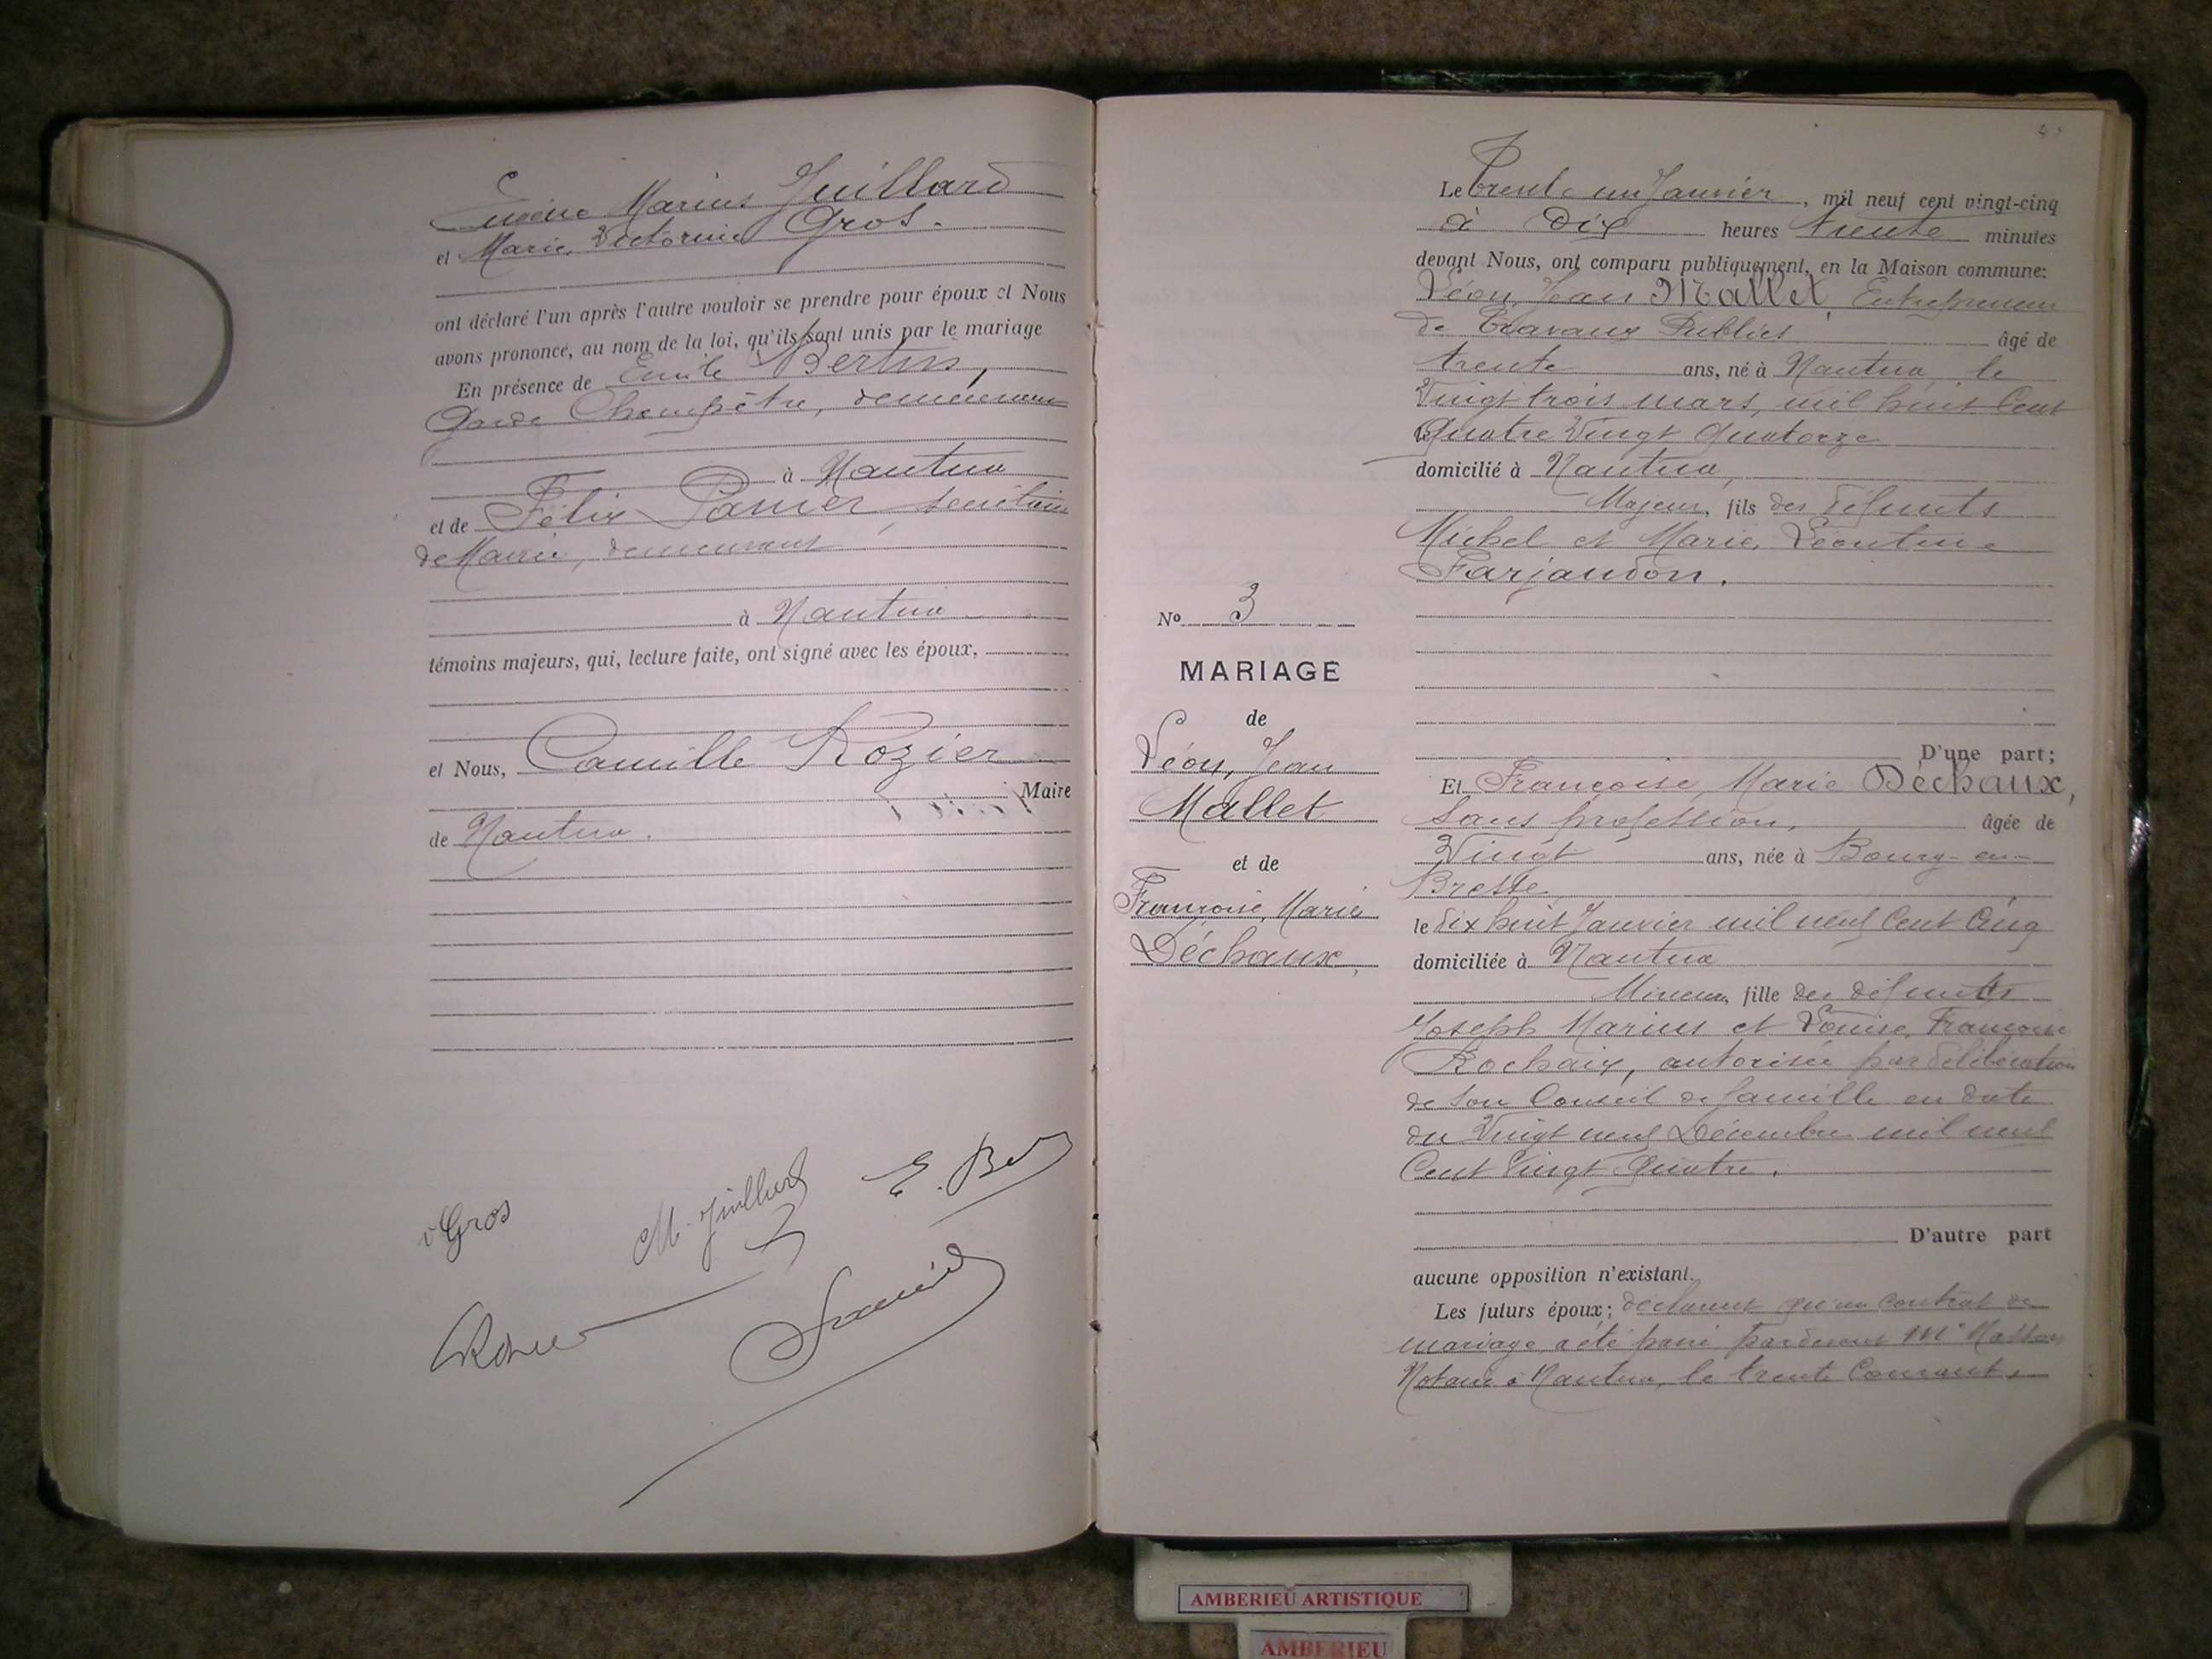 Eugène Marius Juillard
et Marie, Victorine Gros.
ont déclaré l'un après l'autre vouloir se prendre pour époux et Nous
avons prononcé, au nom de la loi, qu'ils sont unis par le mariage
En présence de Emile Bertin,
Garde Champêtre, demeurant
à Nantua
et de Félix Panier, secrétaire
de Mairie, demeurant
à Nantua
témoins majeurs, qui, lecture faite, ont signé avec les époux,
et Nous, Camille Rozier
Maire
de Nantua.
v Gros
M. Juillard
E. Ber
No 3
MARIAGE
de
Léon, Jean
Mallet
et de
Françoise, Marie
Déchaux,
Le trente un Janvier, mil neuf cent vingt-cinq
à Dix heures trente minutes
devant Nous, ont comparu publiquement, en la Maison commune:
Léon, Jean Mallet, Entrepreneur
de Travaux Publics âgé de
trente ans, né à Nantua, le
Vingt trois mars, mil huit Cent
le Quatre Vingt Quatorze
domicilié à Nantua,
Majeur, fils des défunts
Michel et Marie, Léontine
Farjaudon.
D'une part;
Et Françoise, Marie Déchaux,
Sans profession, âgée de
Vingt ans, née à Bourg-en-
Bresse
le dix huit Janvier mil neuf Cent Cinq
domiciliée à Nantua
Mineure, fille des défunts
Joseph Marius et Louise, Françoise
Rochaix, autorisée par délibération
de son Conseil de famille en date
du Vingt neuf Décembre mil neuf
Cent Vingt Quatre.
D'autre part
aucune opposition n'existant.
Les futurs époux; déclarent qu'un contrat de
mariage a été passé pardevant Me
Notaire à Nantua, le trente Courant.
AMBERIEU ARTISTIQUE
AMBERIEU